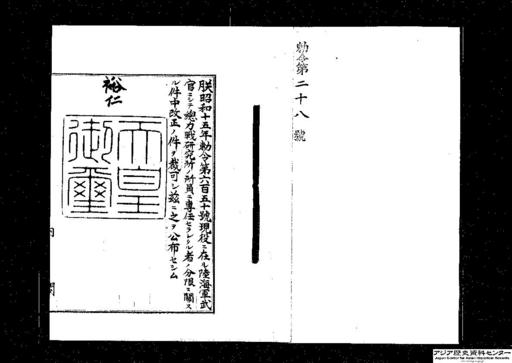 勅令第二十八號
朕昭和十五年勅令第六百五十號現役ニ在ル陸海軍武
官ニシテ總力戰研究所ノ所員ニ專任セラレタル者ノ分限ニ關ス
ル件中改正ノ件ヲ裁可シ茲ニ之ヲ公布セシム
裕仁
天皇
御璽
内閣
アジア歴史資料センター
Japan Center for Asian Historical Records